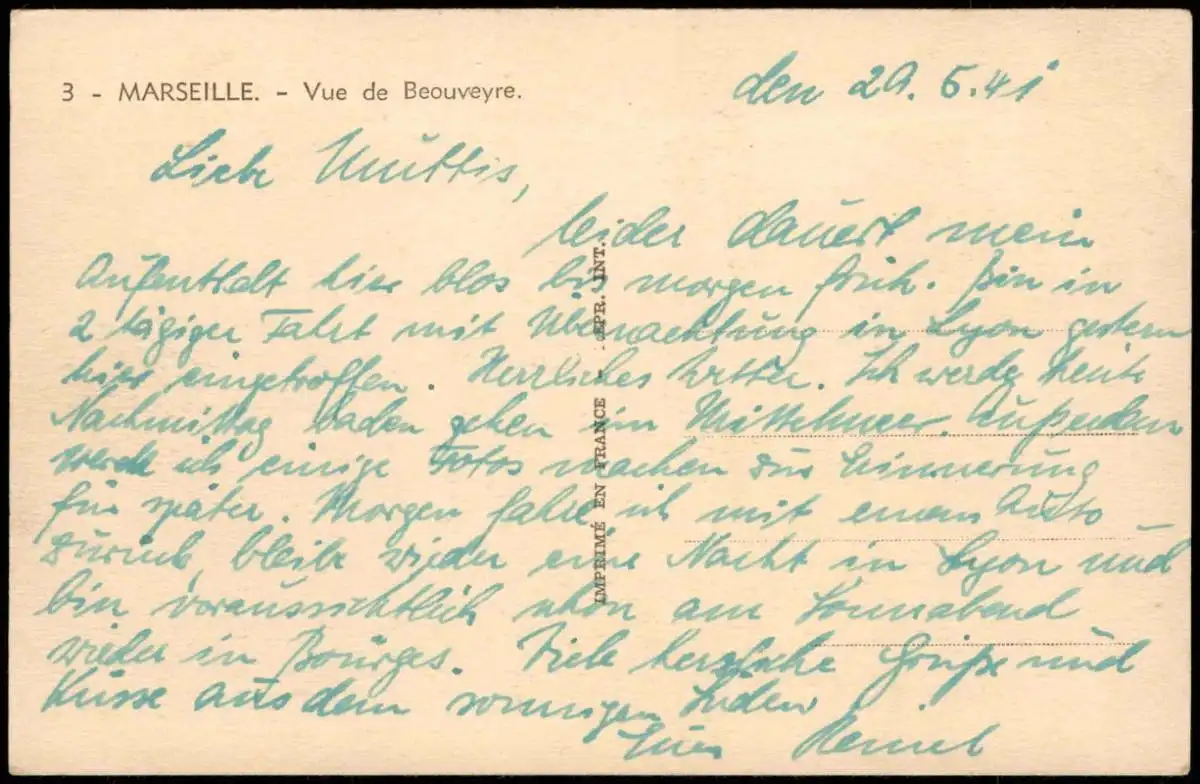 3 - MARSEILLE. - Vue de Beouveyre.
den 29. 5. 41
Liebe Muttis,
leider dauert mein
Aufenthalt hier blos bis morgen früh. Bin in
2 tägiger Fahrt mit Übernachtung in Lyon gestern
hier eingetroffen. Herrliches Wetter. Ich werde heute
Nachmittag baden gehen im Mittelmeer. Außerdem
werde ich einige Fotos machen zur Erinnerung
für später. Morgen fahre ich mit einem Auto
zurück, bleibe wieder eine Nacht in Lyon und
bin voraussichtlich schon am Sonnabend
wieder in Bourges. Viele herzliche Grüße und
Küsse aus dem sonnigen Süden
Euer
IMPRIMÉ EN FRANCE - ÉPR. INT.